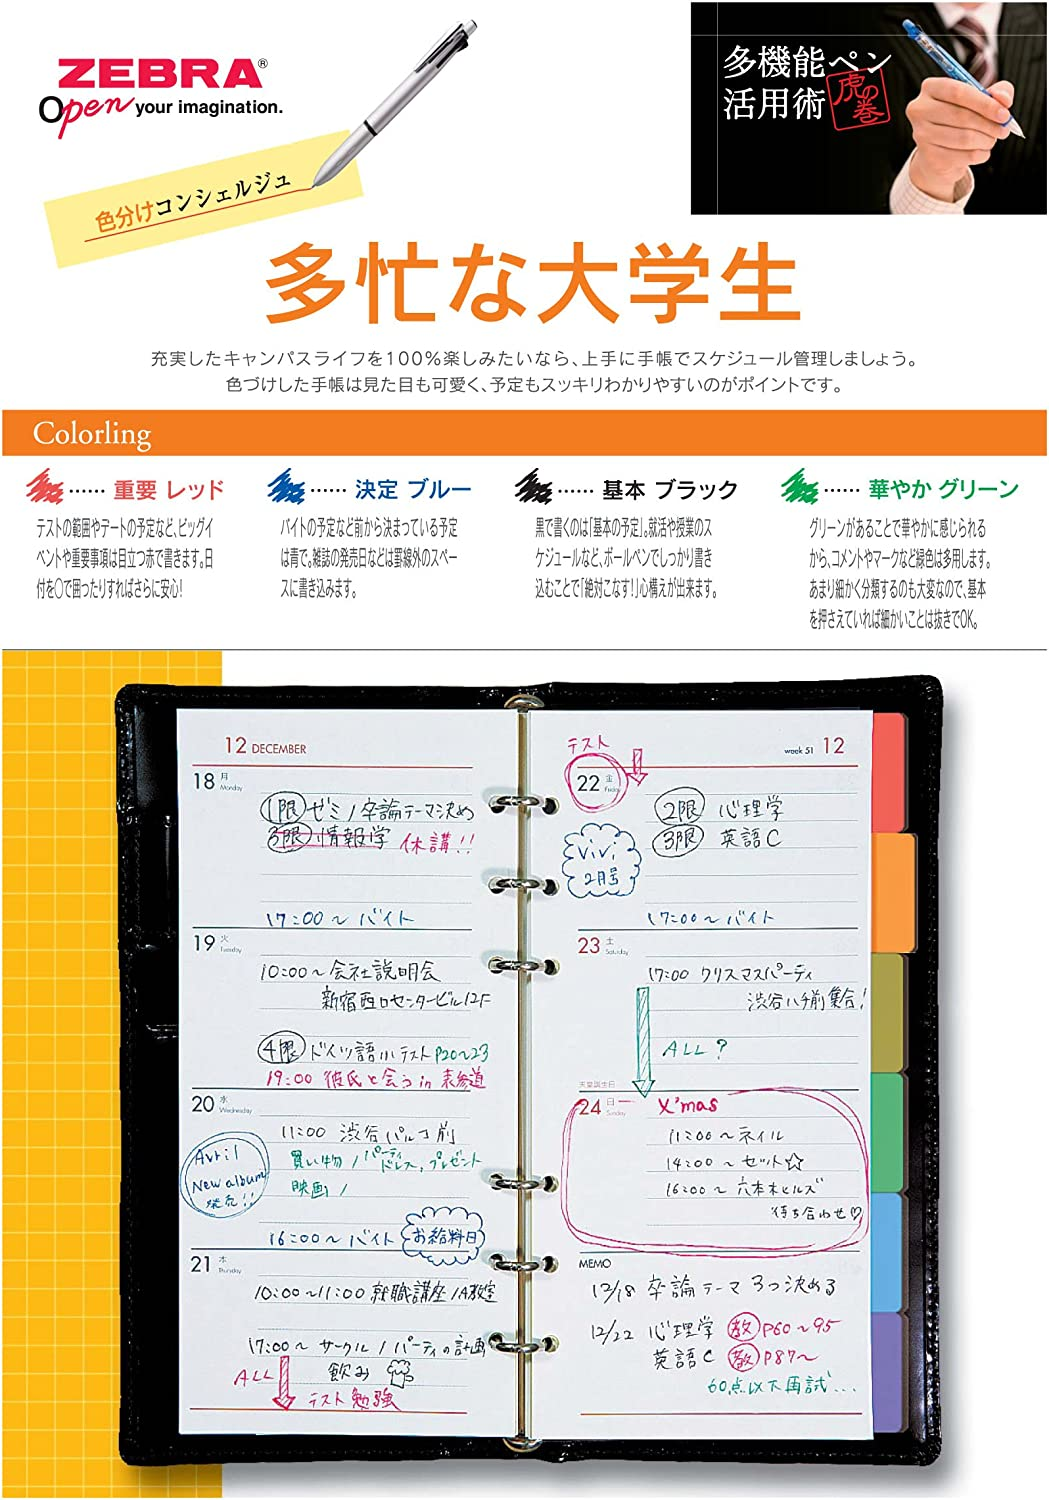 ZEBRA®
Open your imagination.
色分けコンシェルジュ
多機能ペン
活用術
虎の巻
多忙な大学生
充実したキャンパスライフを100%楽しみたいなら、上手に手帳でスケジュール管理しましょう。
色づけした手帳は見た目も可愛く、予定もスッキリわかりやすいのがポイントです。
Colorling
……重要 レッド
テストの範囲やデートの予定など、ビッグイ
ベントや重要事項は目立つ赤で書きます。日
付を〇で囲ったりすればさらに安心!
……決定 ブルー
バイトの予定など前から決まっている予定
は青で。雑誌の発売日などは罫線外のスペー
スに書き込みます。
……基本 ブラック
黒で書くのは「基本の予定」。就活や授業のス
ケジュールなど、ボールペンでしっかり書き
込むことで「絶対こなす!」心構えが出来ます。
……華やか グリーン
グリーンがあることで華やかに感じられる
から、コメントやマークなど緑色は多用します。
あまり細かく分類するのも大変なので、基本
を押さえていれば細かいことは抜きでOK。
12 DECEMBER
18 月
Monday
1限 ゼミ / 卒論テーマ決め
3限 情報学 休講!!
17:00～バイト
19 火
Tuesday
10:00～会社説明会
新宿西口センタービル12F
4限 ドイツ語小テスト P20～23
19:00 彼氏と会う in 表参道
20 水
Wednesday
11:00 渋谷パルコ前
買い物 / パーティドレス、プレゼント
映画 /
Avril
New album
発売!!
16:00～バイト
お給料日
21 木
Thursday
10:00～11:00 就職講座 / A教室
17:00～サークル / パーティの計画
飲み
ALL
テスト勉強
week 51 12
テスト
22 金
Friday
2限 心理学
3限 英語C
ViVi
2月号
17:00～バイト
23 土
Saturday
17:00 クリスマスパーティ
渋谷ハチ前集合!
ALL?
天皇誕生日
24 日
Sunday
X'mas
11:00～ネイル
14:00～セット☆
16:00～六本木ヒルズ
待ち合わせ♡
MEMO
12/18 卒論テーマ 3つ決める
12/22 心理学 教 P60～95
英語C 教 P87～
60点以下再試…